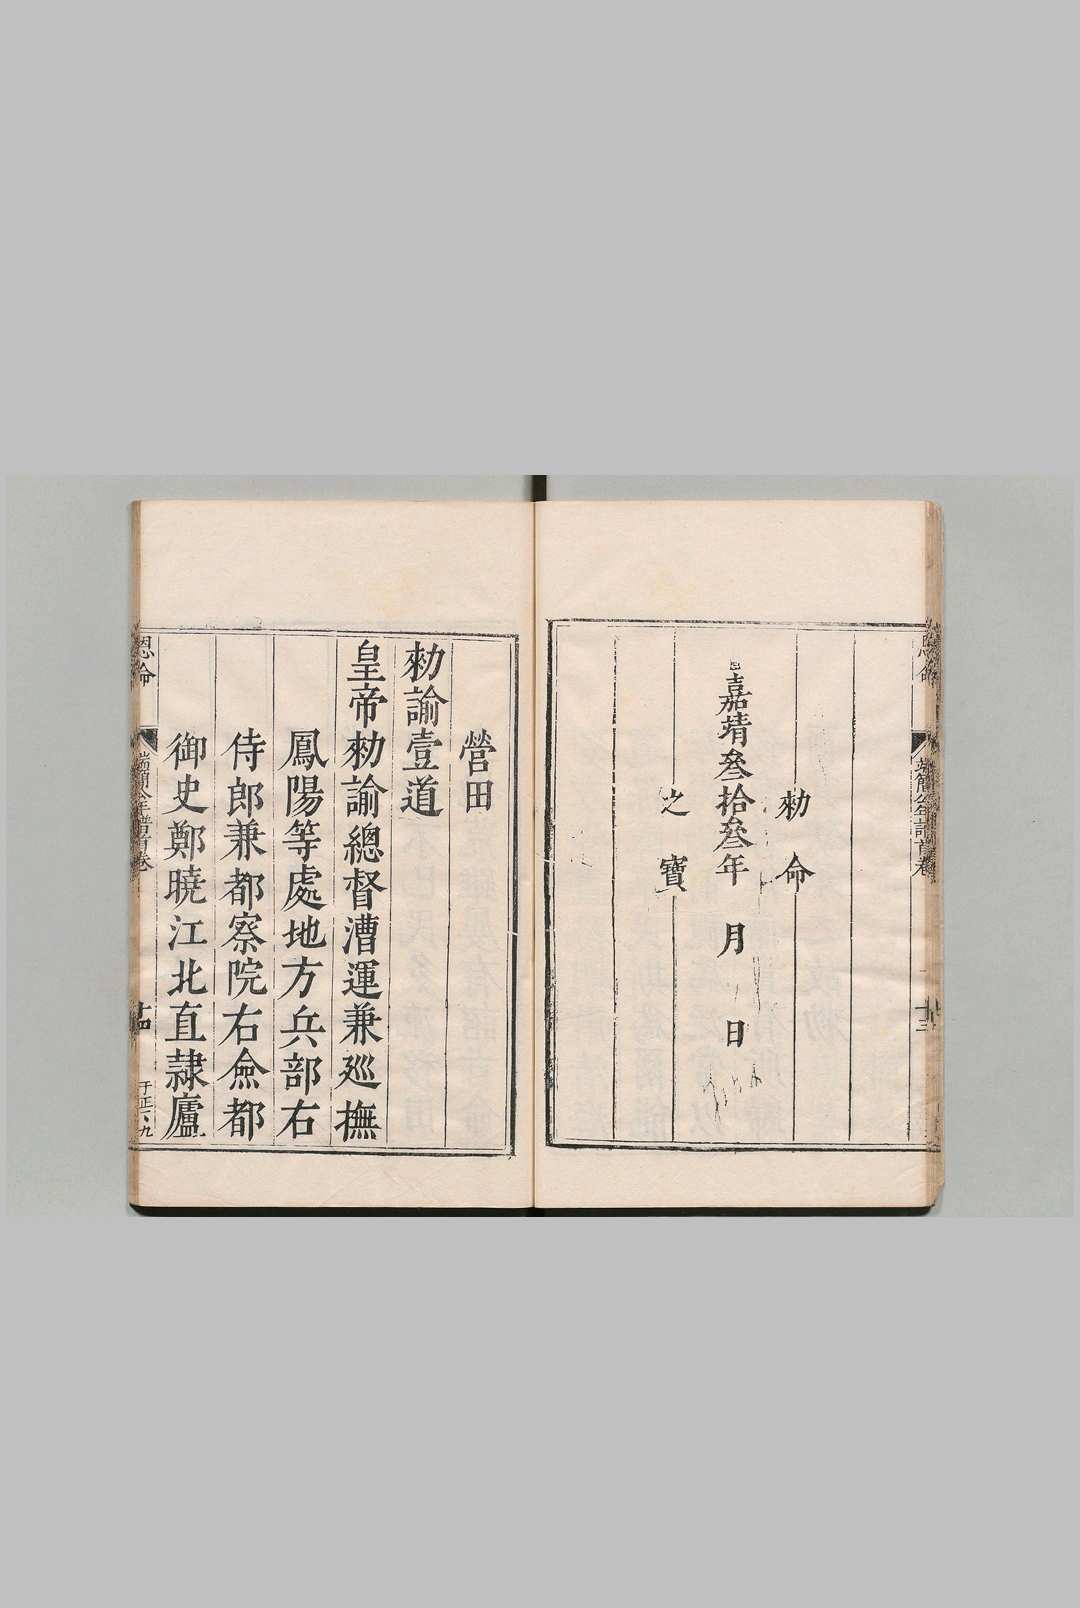 勑
命
嘉靖叄拾叄年 月 日
之
寶
恩命
端簡公年譜首卷
十三
營田
勑諭壹道
皇帝勑諭總督漕運兼廵撫
鳳陽等處地方兵部右
侍郎兼都察院右僉都
御史鄭曉江北直隷廬
恩命
端簡公年譜首卷
十四